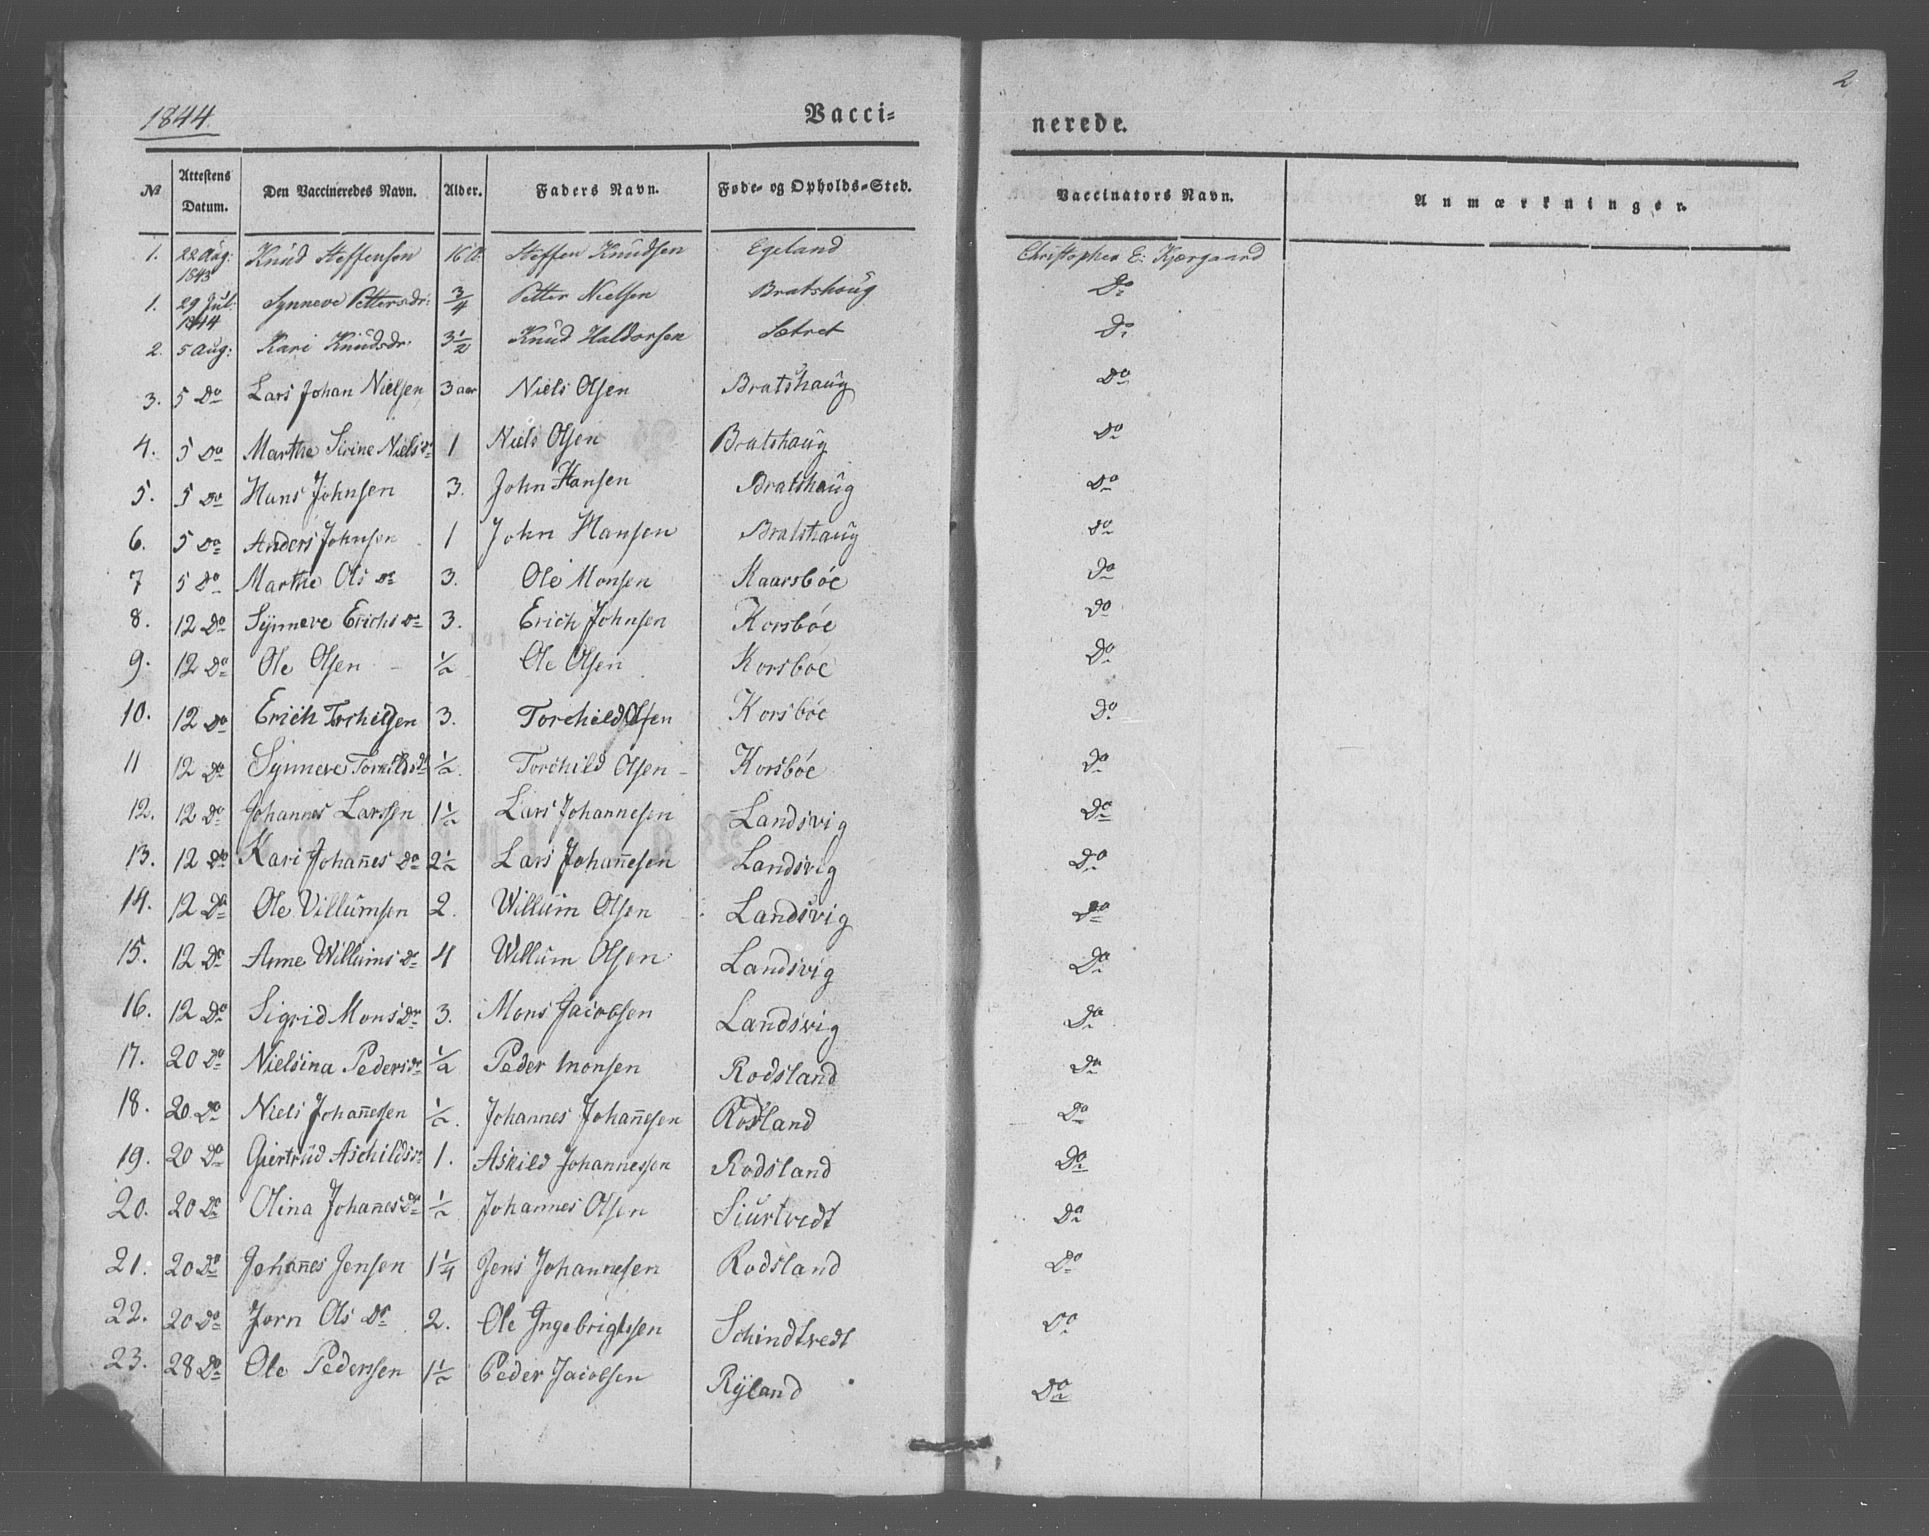 2
1844.
Vacci= nerede.
№ Attestens Datum. Den Vaccineredes Navn. Alder. Faders Navn. Føde- og Opholds-Sted. Vaccinators Navn. Anmærkninger.
1. 22 Aug: 1843 Knud Steffensen 16 Steffen Knudsen Egeland Christopher E: Kjærgaard
1. 29 Jul: 1844 Synneve Pettersdr: 3/4 Petter Nielsen Bratshoug Do
2. 5 Aug: Kari Knudsdr. 3 1/2 Knud Haldorsen Sætret Do
3. 5 Do Lars Johan Nielsen 3 aar Niels Olsen Bratshaug Do
4. 5 Do Marthe Sirine Nielsdr 1 Niels Olsen Bratshaug Do
5. 5 Do Hans Johnsen 3. John Hansen Bratshaug Do
6. 5 Do Anders Johnsen 1 John Hansen Bratshaug Do
7 5 Do Marthe Ols Dr 3. Ole Monsen Kaarsbøe Do
8. 12 Do Synneve Erichs Dr 3. Erich Johnsen Korsbøe Do
9. 12 Do Ole Olsen 1/2 Ole Olsen Korsbøe Do
10. 12 Do Erich Torchildsen 3. Torchild Olsen Korsbøe Do
11 12 Do Synneve Torchilds Dr 1/2. Torchild Olsen Korsbøe Do
12. 12 Do Johannes Larssen 1 1/2 Lars Johannesen Landsvig Do
13. 12 Do Kari Johañes Dr 2 1/2 Lars Johañesen Landsvig Do
14. 12 Do Ole Villumsen 2. Willum Olsen Landsvig Do
15. 12 Do Anne Willums Dr 4 Willum Olsen Landsvig Do
16. 12 Do Sigrid Mons Dr 3. Mons Jacobsen Landsvig Do
17. 20 Do Nielsina Peders Dr 1/2 Peder Monsen Rodsland Do
18. 20 Do Niels Johañesen 1/2. Johannes Johañesen Rodsland Do
19. 20 Do Giertrud Aschilds Dr 1. Askild Johannessen Rodsland Do
20. 20 Do Olina Johañes Dr 1/2 Johannes Olsen Siurtvedt Do
21. 20 Do Johañes Jensen 1 1/4 Jens Johannesen Rodsland Do
22. 20 Do Jorn Ols Dr 2. Ole Ingebrigtssen Schindtvedt Do
23. 28 Do Ole Pedersen 1 1/2 Peder Jacobsen Ryland Do